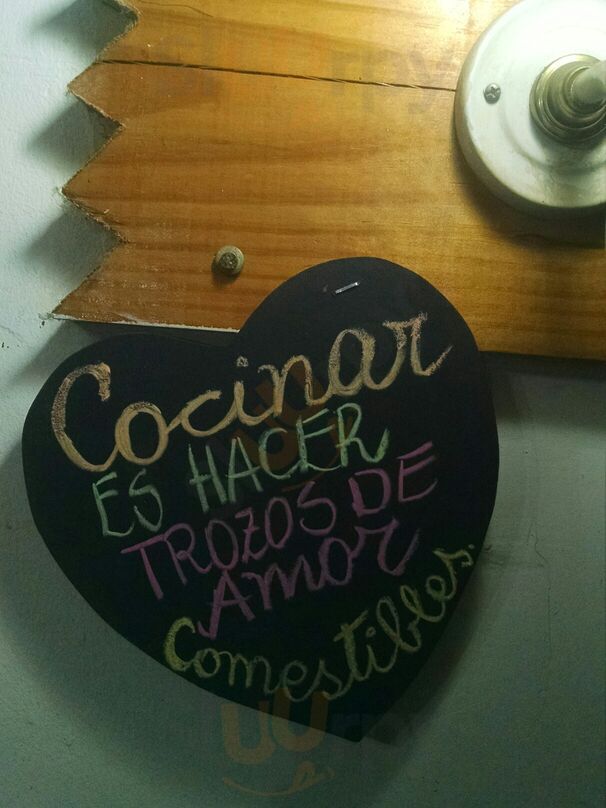 Cocinar
ES HACER
TROZOS DE
Amor
Comestibles.